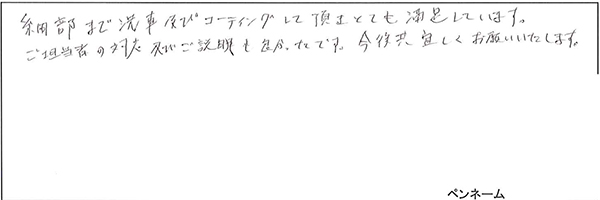 細部まで洗車及びコーティングして頂きとても満足しています。
ご担当者の対応及びご説明も良かったです。今後共宜しくお願いいたします。
ペンネーム